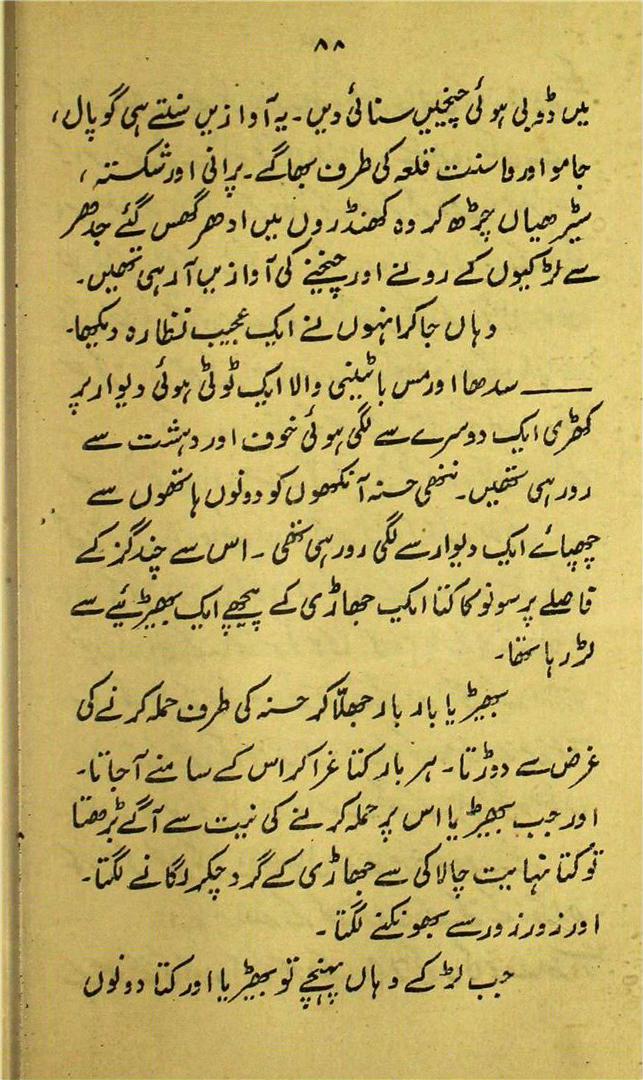 ۸۸
میں ڈوبی ہوئی چیخیں سنائی دیں۔ یہ آوازیں سنتے ہی گوپال،
جامو اور واسنت قلعہ کی طرف بھاگے۔ پرانی اور شکستہ،
سیڑھیاں چڑھ کر وہ کھنڈروں میں ادھر گھس گئے جدھر
سے لڑکیوں کے رونے اور چیخنے کی آوازیں آرہی تھیں۔
وہاں جاکر انہوں نے ایک عجیب نظارہ دیکھا۔
—— سدھا اور مس باٹینی والا ایک ٹوٹی ہوئی دیوار پر
کھڑی ایک دوسرے سے لگی ہوئی خوف اور دہشت سے
رورہی تھیں۔ ننھی حسنہ آنکھوں کو دونوں ہاتھوں سے
چھپائے ایک دیوار سے لگی رورہی تھی۔ اس سے چند گز کے
فاصلے پر سونو کا کتا ایک جھاڑی کے پیچھے ایک بھیڑیئے سے
لڑ رہا تھا۔
بھیڑیا بار بار جھلّا کر حسنہ کی طرف حملہ کرنے کی
غرض سے دوڑتا۔ ہر بار کتا غراکر اس کے سامنے آجاتا۔
اور جب بھیڑیا اس پر حملہ کرنے کی نیت سے آگے بڑھتا
تو کتا نہایت چالاکی سے جھاڑی کے گرد چکر لگانے لگتا۔
اور زور زور سے بھونکنے لگتا۔
جب لڑکے وہاں پہنچے تو بھیڑیا اور کتا دونوں